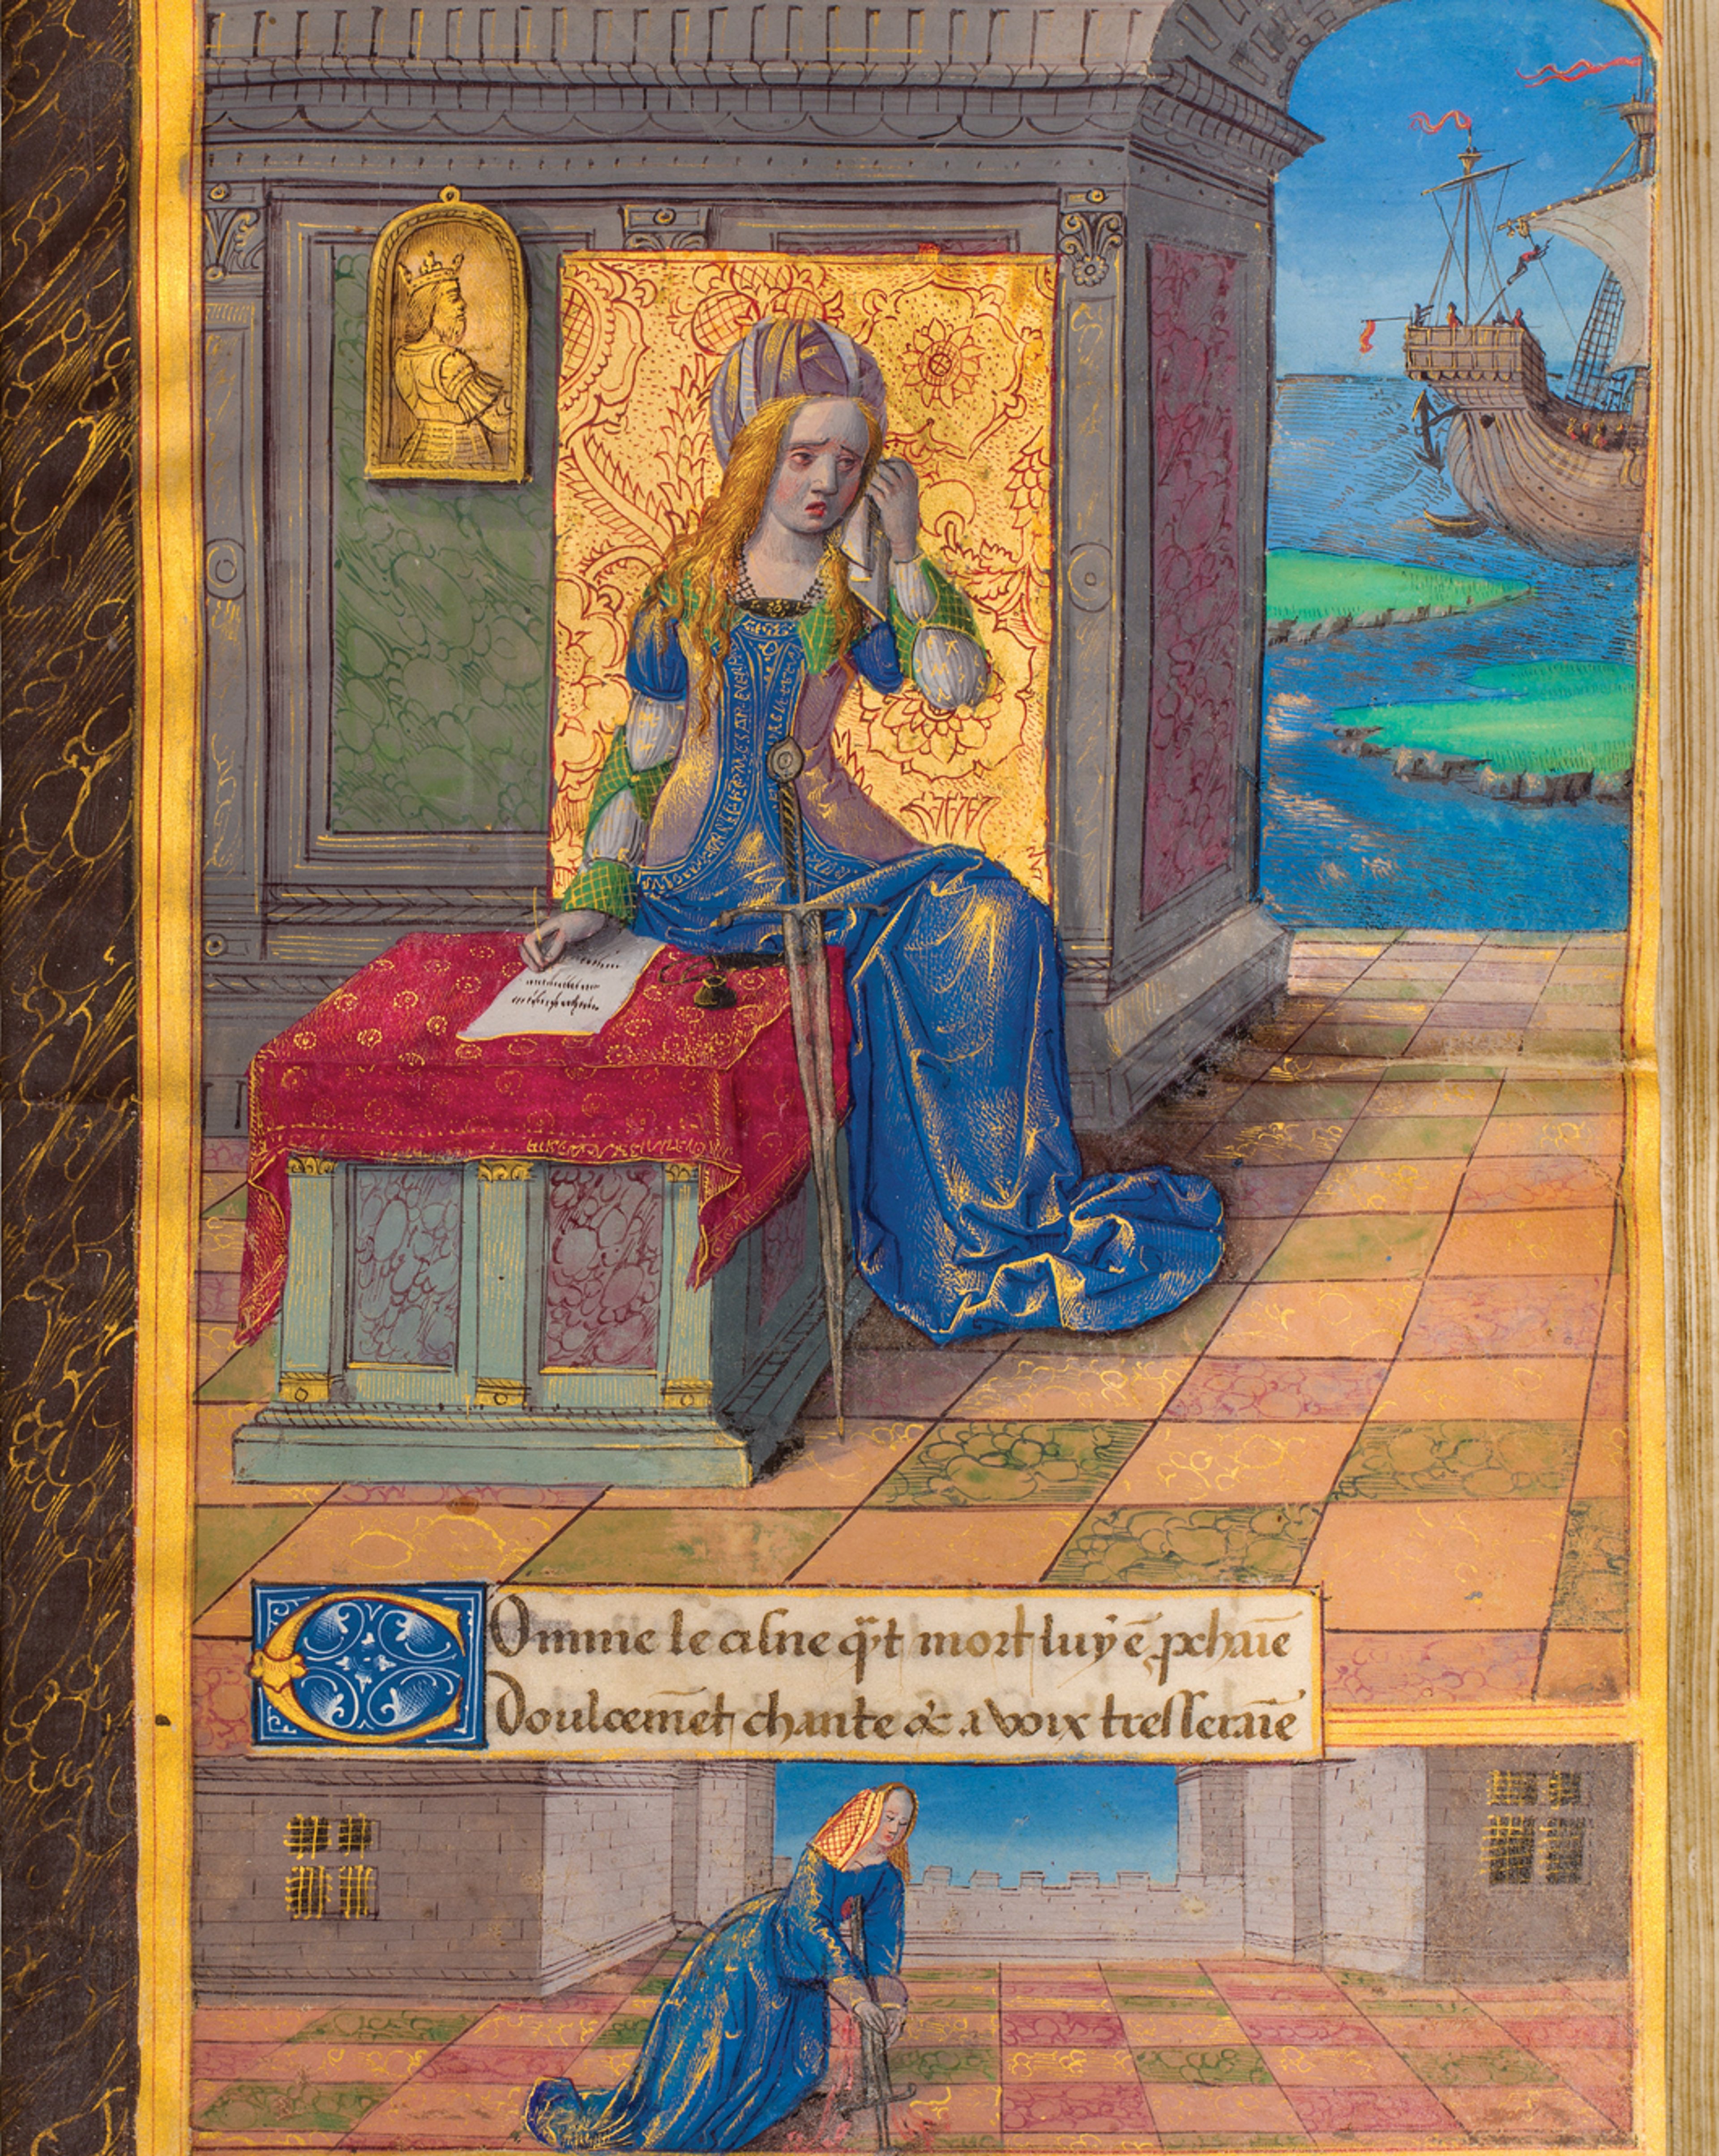 COmme le cisne q̃t mort luy ẽ pchaīe
Doulcemẽt chante & a voix tresseraīe